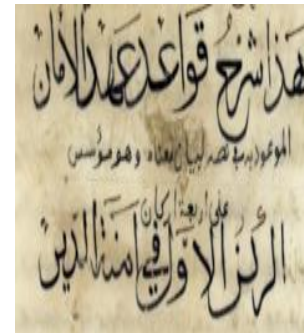 هذا شرح قواعد عهد الأمان
الموعود به في نصه لبيان معناه وهو مؤسس
على أربعة أركان
الركن الأول في أمنة الدين